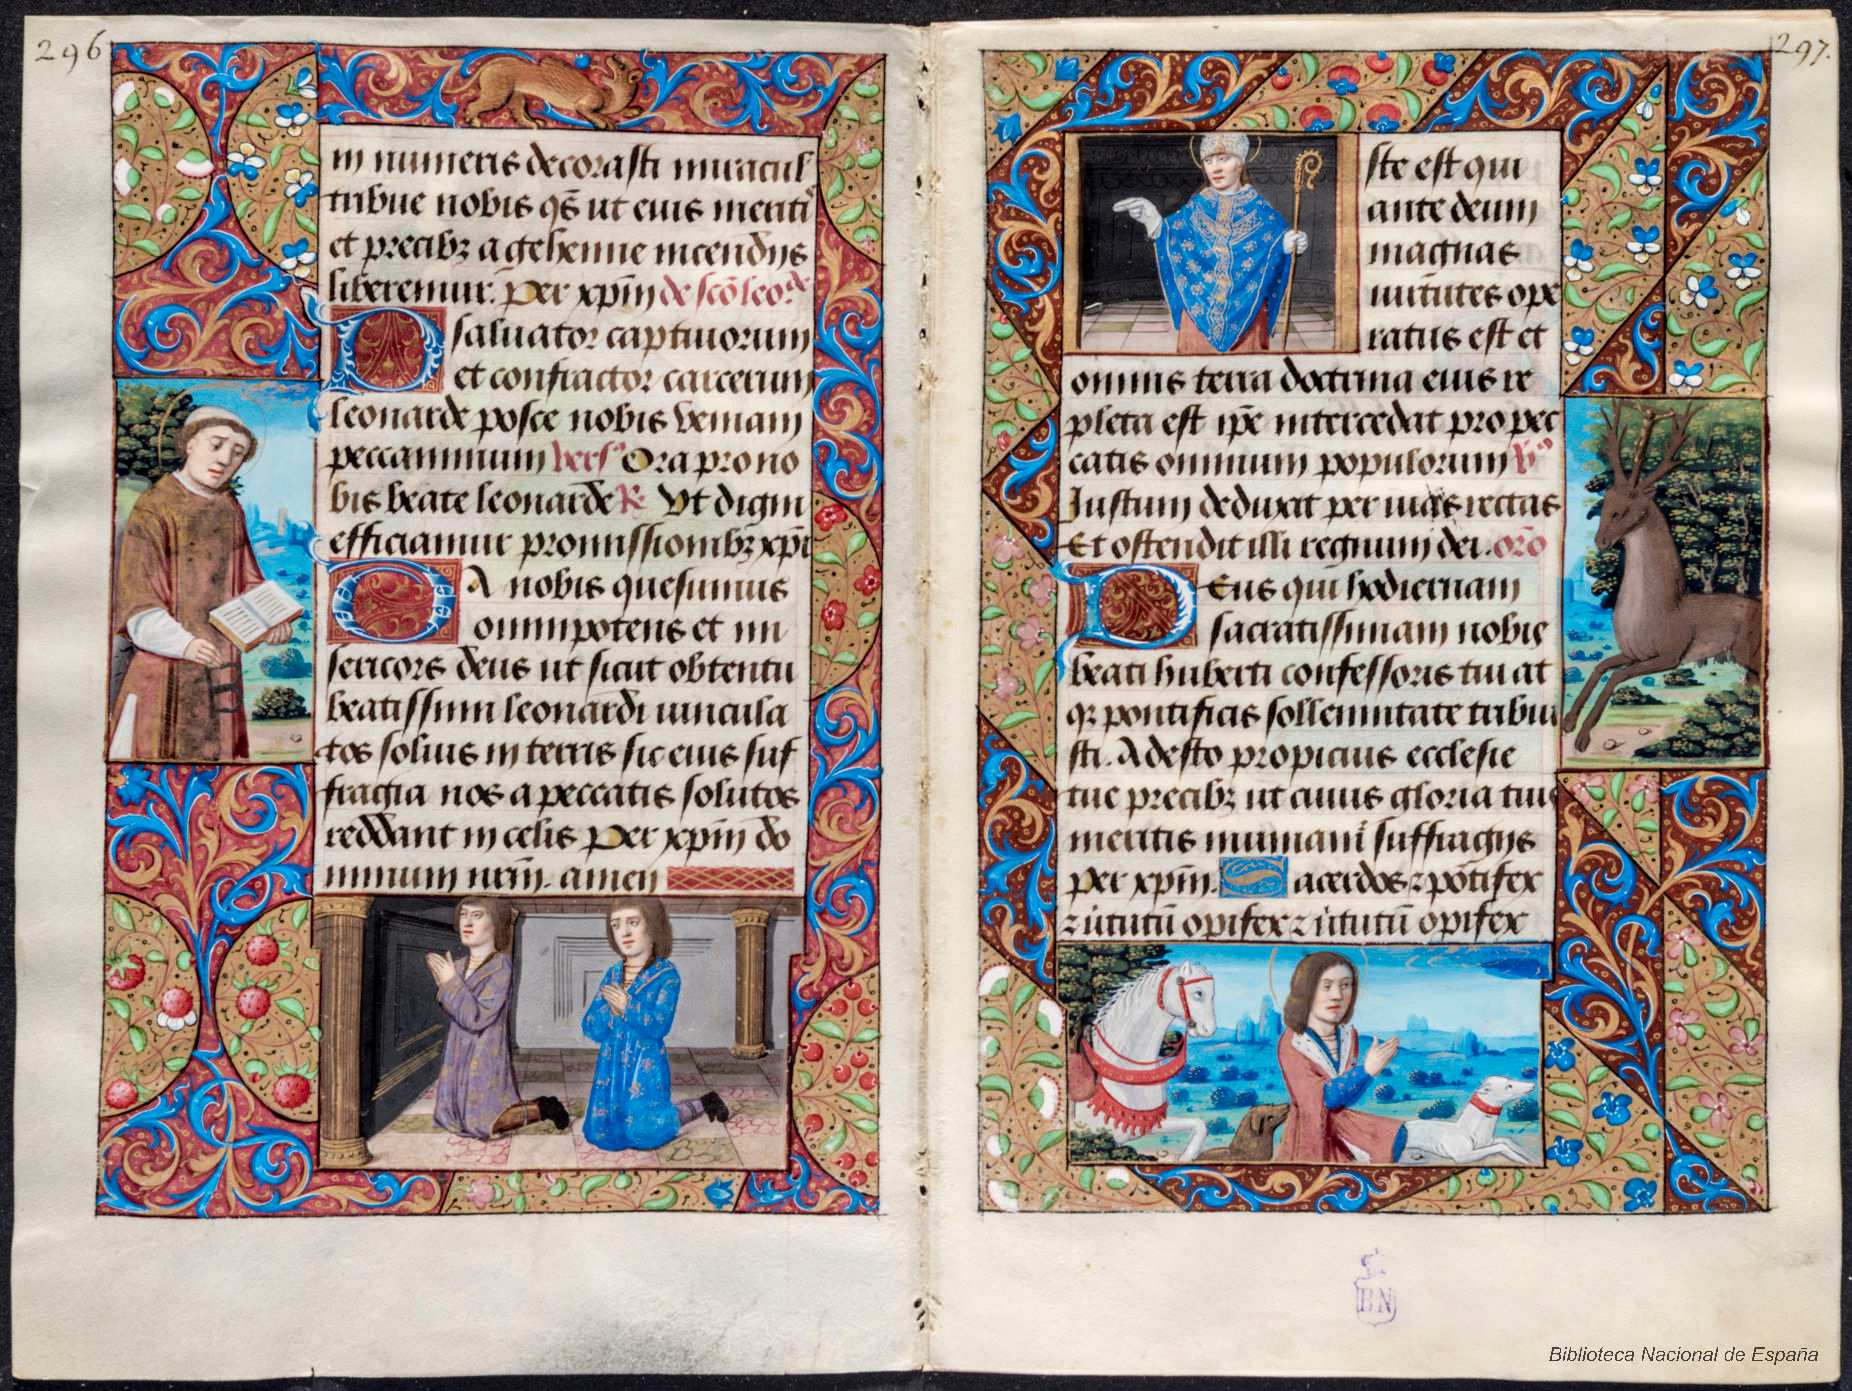 296
in numeris decorasti miracul'
tribue nobis qs̄ ut eius meriti'
et precibꝫ a gehenne incendijs
liberemur. Per xp̄m de scō leo.de
O saluator captiuorum
et confractor carcerum
leonarde posce nobis veniam
peccaminum vers' Ora pro no
bis beate leonarde ℟ Vt digni
efficiamur promissionibꝫ xp̄i
Da nobis quesumus
omnipotens et mi
sericors deus ut sicut obtentu
beatissimi leonardi uincula
tos soluis in terris sic eius suf
fragia nos a peccatis solutos
reddant in celis Per xp̄m do
minum nrm̄. amen
297.
ste est qui
ante deum
magnas
uirtutes ope
ratus est et
omnis terra doctrina eius re
pleta est ip̄e intercedat pro pec
catis omnium populorum
Iustum deduxit per uias rectas
Et ostendit illi regnum dei. orō
Deus qui hodiernam
sacratissimam nobis
beati huberti confessoris tui at
qꝫ pontificis sollennitate tribui
sti. Adesto propicius ecclesie
tue precibꝫ ut cuius gloria tuis
meritis muniami' suffragijs
per xp̄m. Sacerdos ⁊ pōtifex
⁊ ùtutū opifex ⁊ ùtutū opifex
BN
Biblioteca Nacional de España